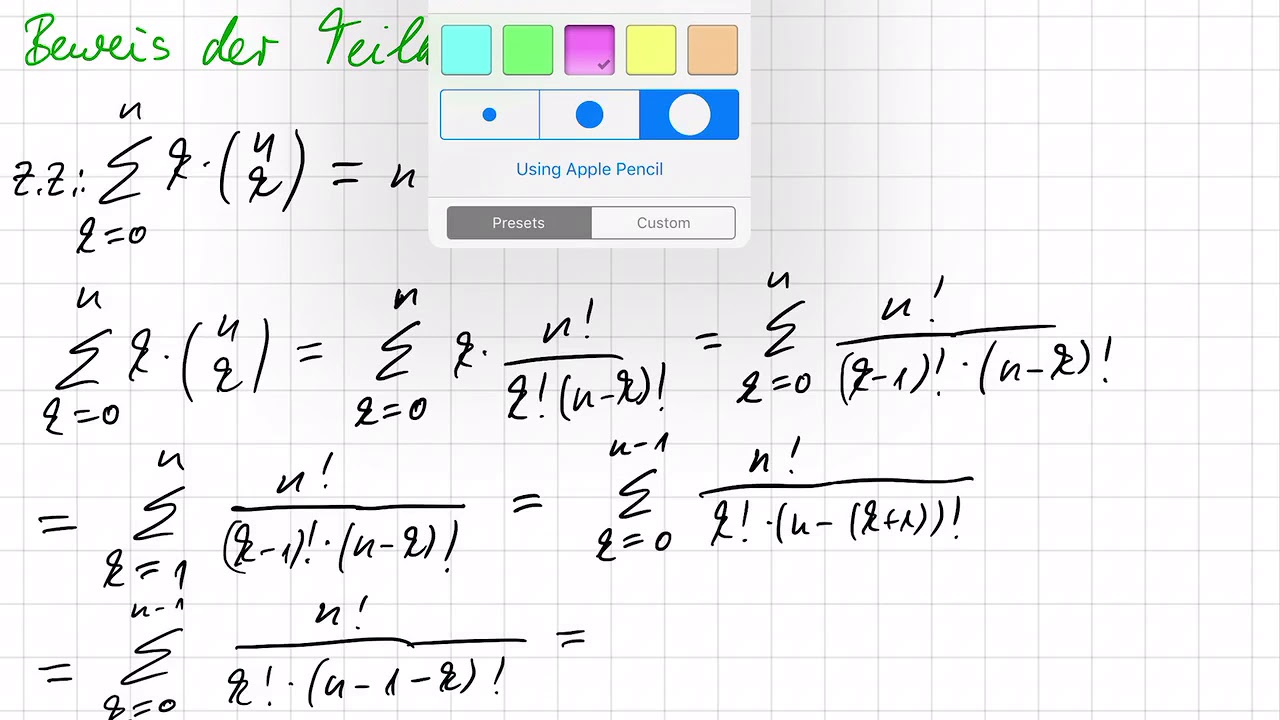 Beweis der
Using Apple Pencil
Presets Custom
z.z.: \sum_{k=0}^{n} k \cdot \binom{n}{k} = n
\sum_{k=0}^{n} k \cdot \binom{n}{k} = \sum_{k=0}^{n} k \cdot \frac{n!}{k!(n-k)!} = \sum_{k=0}^{n} \frac{n!}{(k-1)! \cdot (n-k)!}
= \sum_{k=1}^{n} \frac{n!}{(k-1)! \cdot (n-k)!} = \sum_{k=0}^{n-1} \frac{n!}{k! \cdot (n-(k+1))!}
= \sum_{k=0}^{n-1} \frac{n!}{k! \cdot (n-1-k)!} =